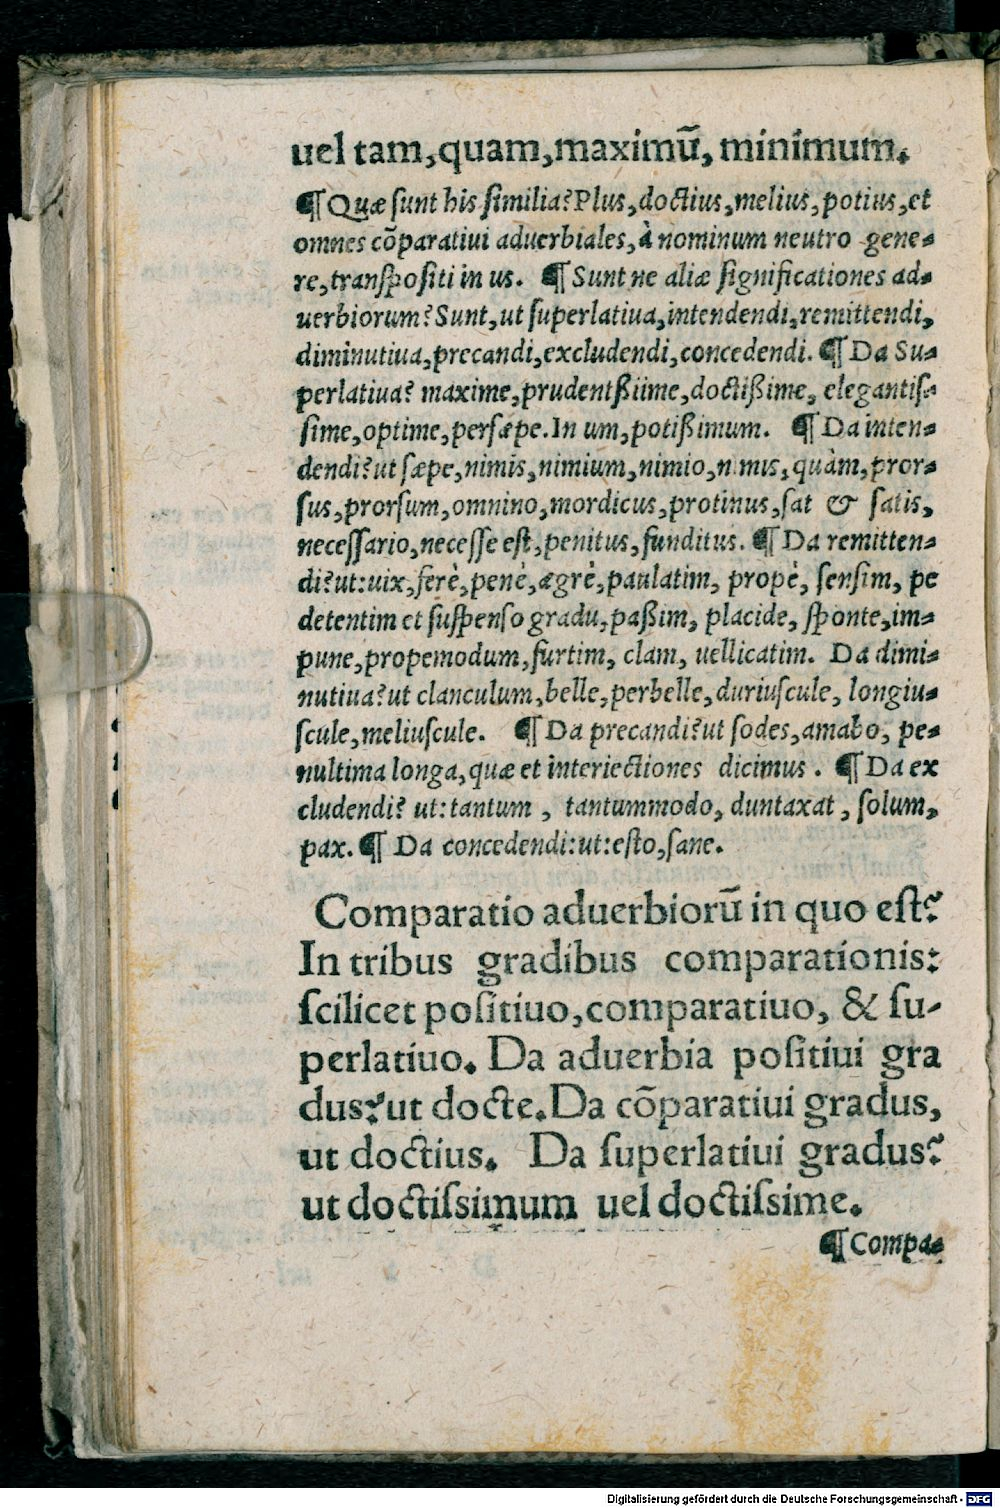 uel tam,quam,maximũ, minimum.
¶ Quæ ſunt his ſimilia? Plus,doctius,melius,potius,et
omnes cõparatiui aduerbiales,à nominum neutro gene-
re,tranſpoſiti in us. ¶ Sunt ne aliæ ſignificationes ad-
uerbiorum? Sunt,ut ſuperlatiua,intendendi,remittendi,
diminutiua,precandi,excludendi,concedendi. ¶ Da Su-
perlatiua? maxime,prudentßiime,doctißime, elegantiſ-
ſime,optime,perſæpe. In um,potißimum. ¶ Da inten-
dendi? ut ſæpe,nimis,nimium,nimio,nimis,quàm,pror-
ſus,prorſum,omnino,mordicus,protinus,ſat & ſatis,
neceſſario,neceſſe eſt,penitus,funditus. ¶ Da remitten-
di? ut: uix,ferè,penè,ægrè,paulatim, propè, ſenſim, pe
detentim et ſuſpenſo gradu,paßim, placide, ſponte,im-
pune,propemodum,furtim, clam, uellicatim. Da dimi-
nutiua? ut clanculum,belle,perbelle,duriuſcule, longiu-
ſcule,meliuſcule. ¶ Da precandi? ut ſodes,amabo, pe-
nultima longa,quæ et interiectiones dicimus. ¶ Da ex
cludendi? ut: tantum, tantummodo, duntaxat, ſolum,
pax. ¶ Da concedendi: ut: eſto,ſane.
Comparatio aduerbiorũ in quo eſt?
In tribus gradibus comparationis:
ſcilicet poſitiuo,comparatiuo, & ſu-
perlatiuo. Da aduerbia poſitiui gra
dus? ut docte. Da cõparatiui gradus,
ut doctius. Da ſuperlatiui gradus?
ut doctiſsimum uel doctiſsime.
¶ Compa-
Digitalisierung gefördert durch die Deutsche Forschungsgemeinschaft - DFG